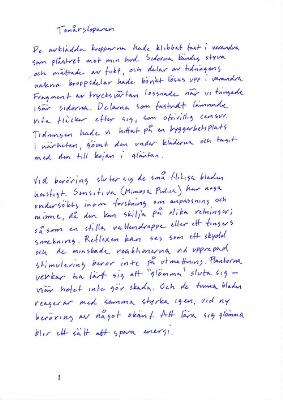 Tonårskroppen
De avklädda kropparna hade klibbat fast i varandra
som plåstret mot min hud. Sidorna kändes styva
och mättade av fukt, och delar av tidningens
nakna kroppsdelar hade börjat lösas upp i varandra.
Fragment av trycksvärtan lossnade när vi tvingade
isär sidorna. Delarna som fastnat lämnade
vita fläckar efter sig, som ofrivillig censur.
Tidningen hade vi hittat på en byggarbetsplats
i närheten, gömt den under kläderna och tagit
med den till kojan i gläntan.
Vid beröring sluter sig de små flikiga bladen
hastigt. Sensitiva (Mimosa Pudica) har noga
undersökts inom forskning om anpassning och
minne, då den kan skilja på olika retningar;
såsom en stilla vattendroppe eller ett fingers
smekning. Reflexen kan ses som ett skydd
och de minskade reaktionerna vid upprepad
stimulering beror inte på utmattning. Plantorna
verkar ha lärt sig att "glömma" sluta sig –
när hotet inte gör skada. Och de tunna bladen
reagerar med samma styrka igen, vid ny
beröring av något okänt. Att lära sig glömma
blir ett sätt att spara energi.
1